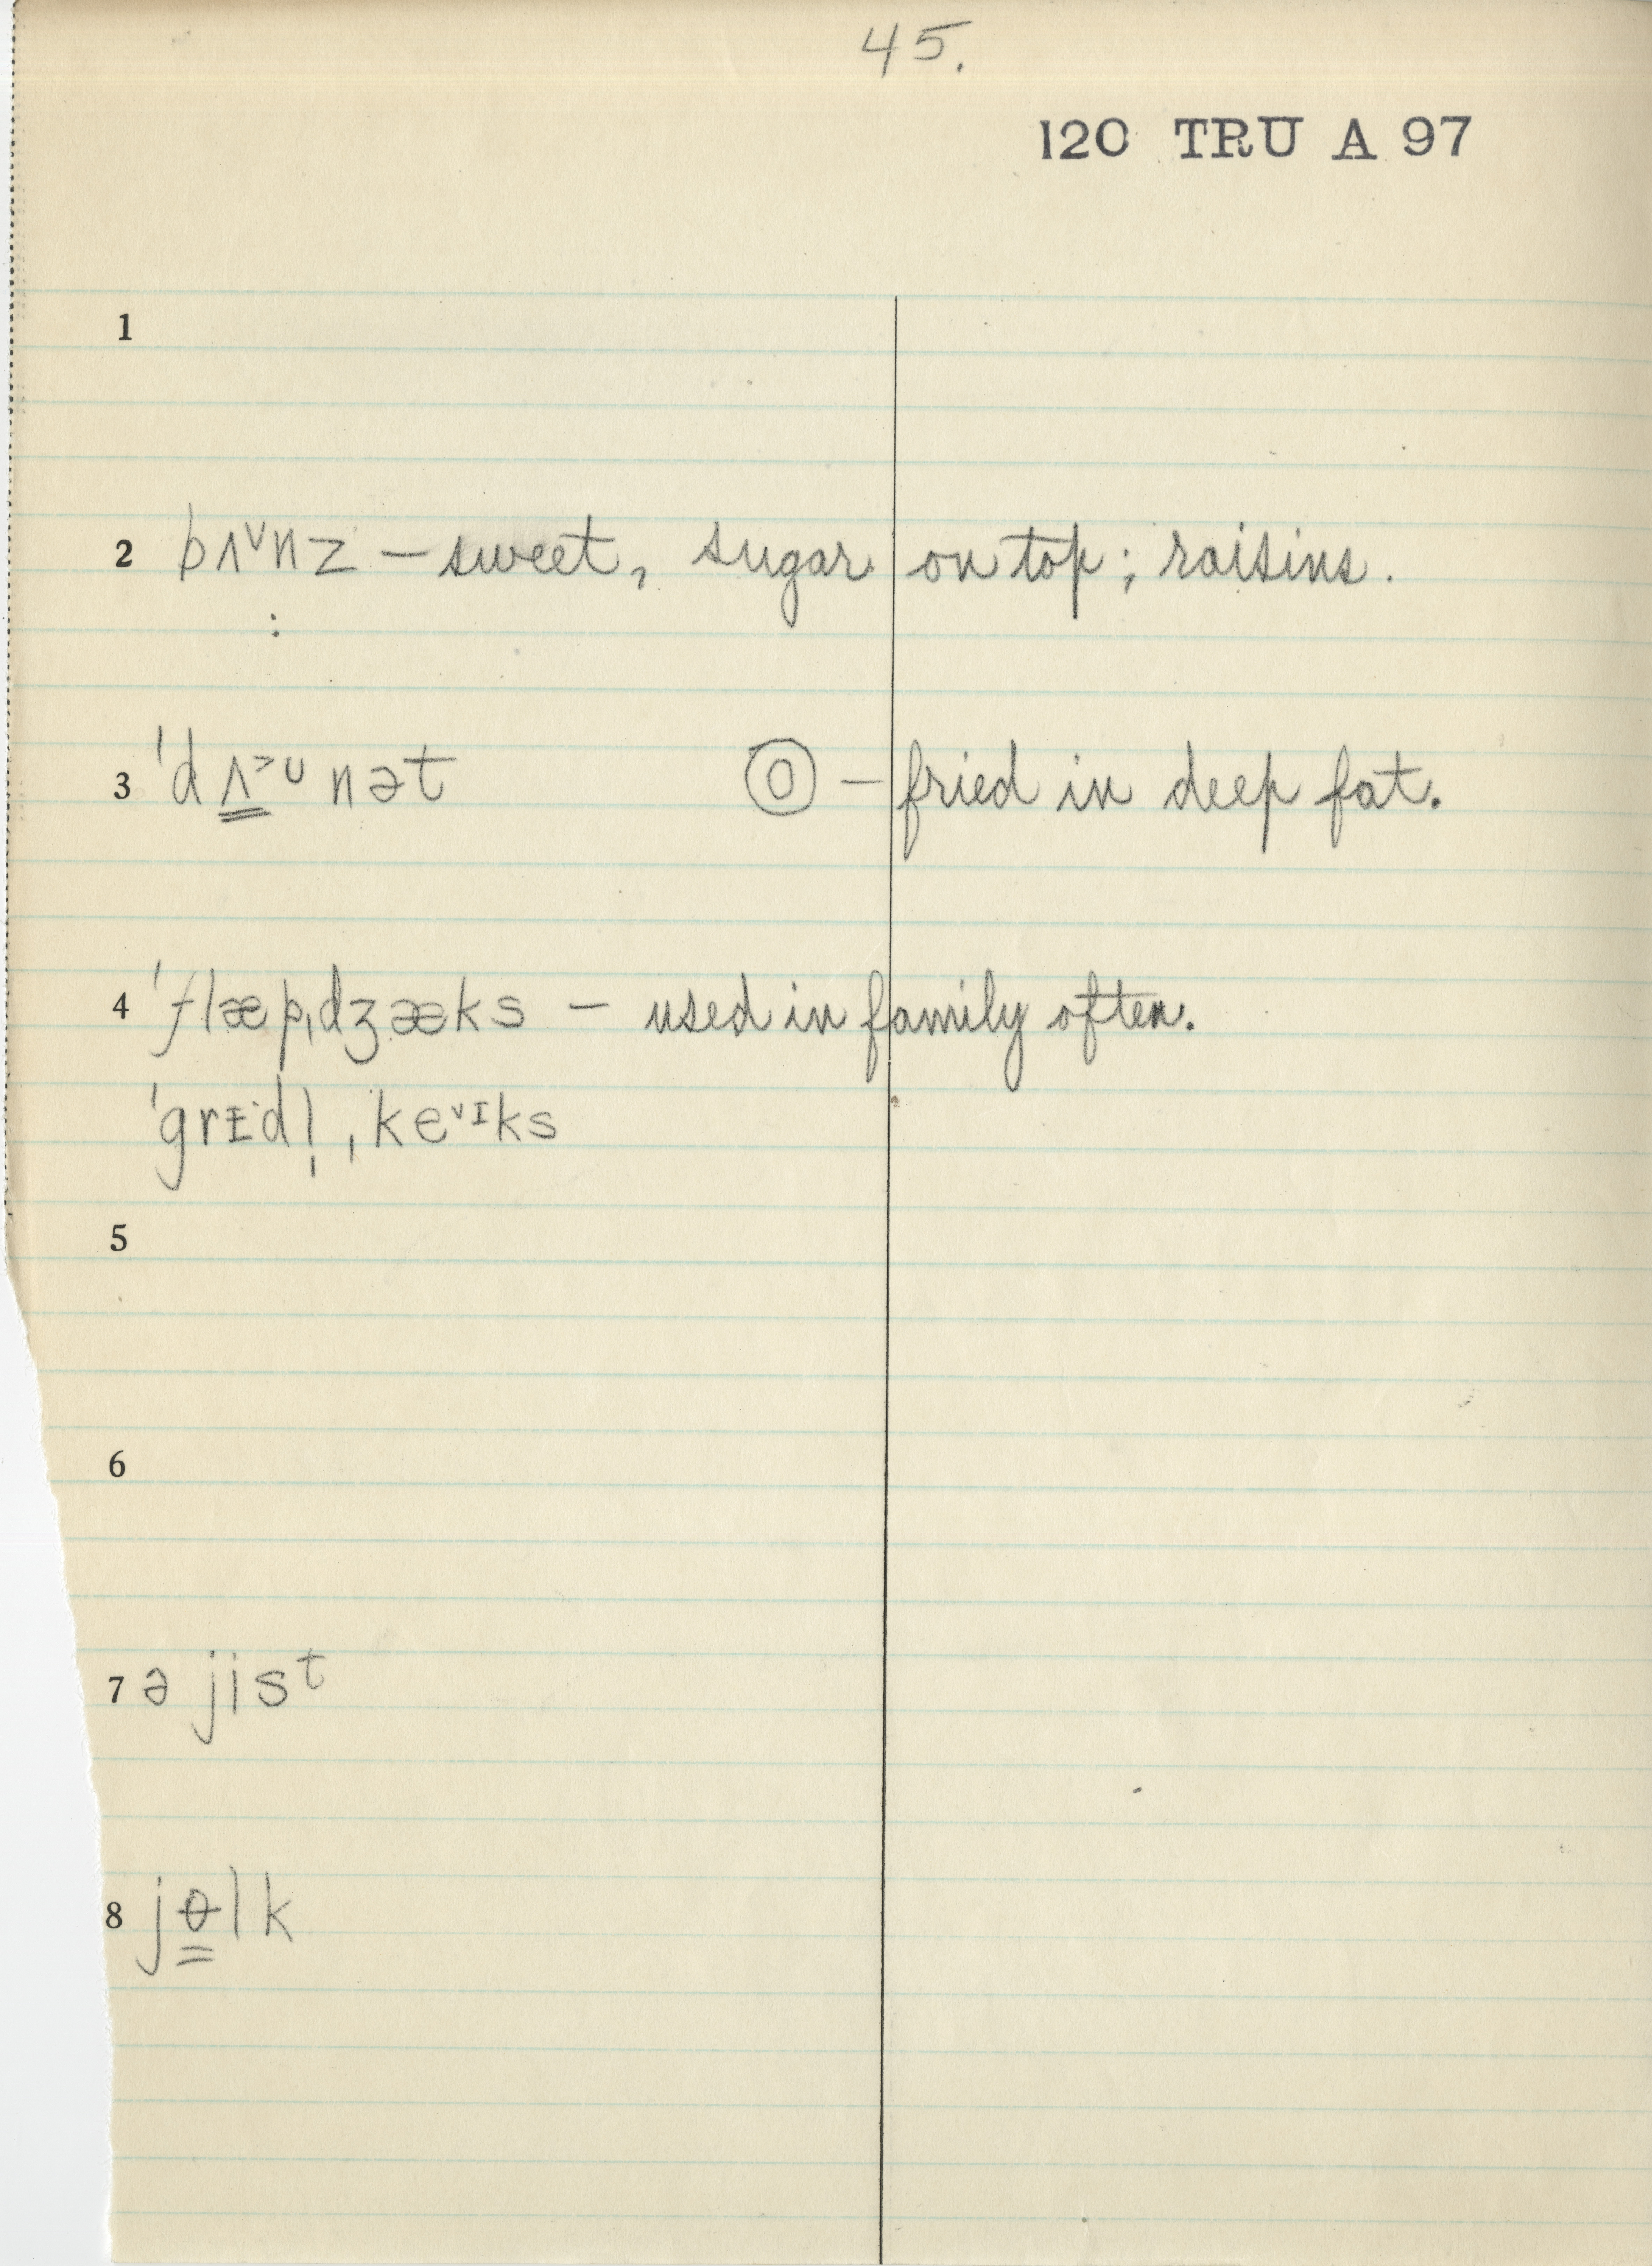 45.
120 TRU A 97
1
2 bʌ˅nz – sweet, sugar on top; raisins.
:
3 ˈdʌ̳˃ᴜnət ⓞ – fried in deep fat.
4 ˈflæpˌdʒæks – used in family often.
ˈgrɪ̵dl̩ ˌke˅ᶦks
5
6
7 ə jisᵗ
8 jɵ̳lk